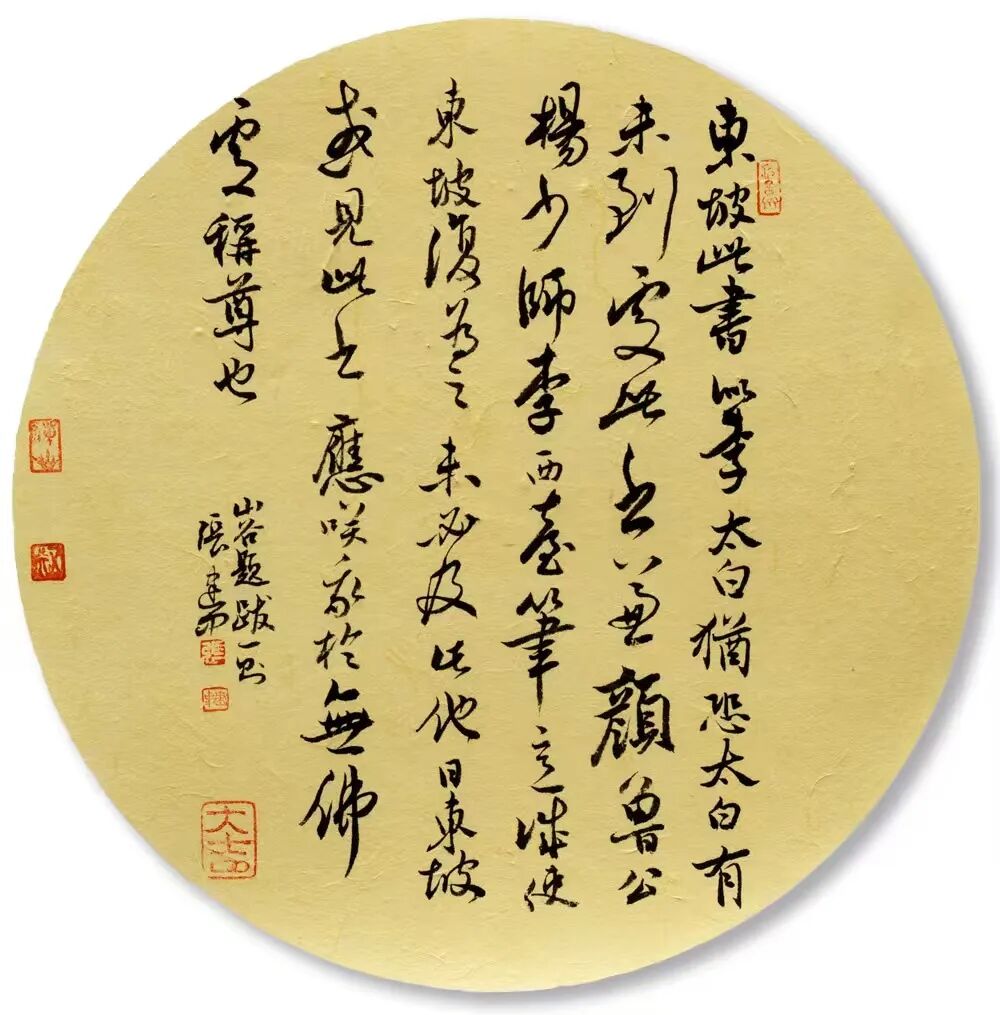 東坡此書似李太白猶恐太白有
未到處此书兼顏魯公
楊少師李西臺筆意試使
東坡復為之未必及此他日東坡
或見此书應咲我於無佛
處稱尊也
山谷題跋一則
張